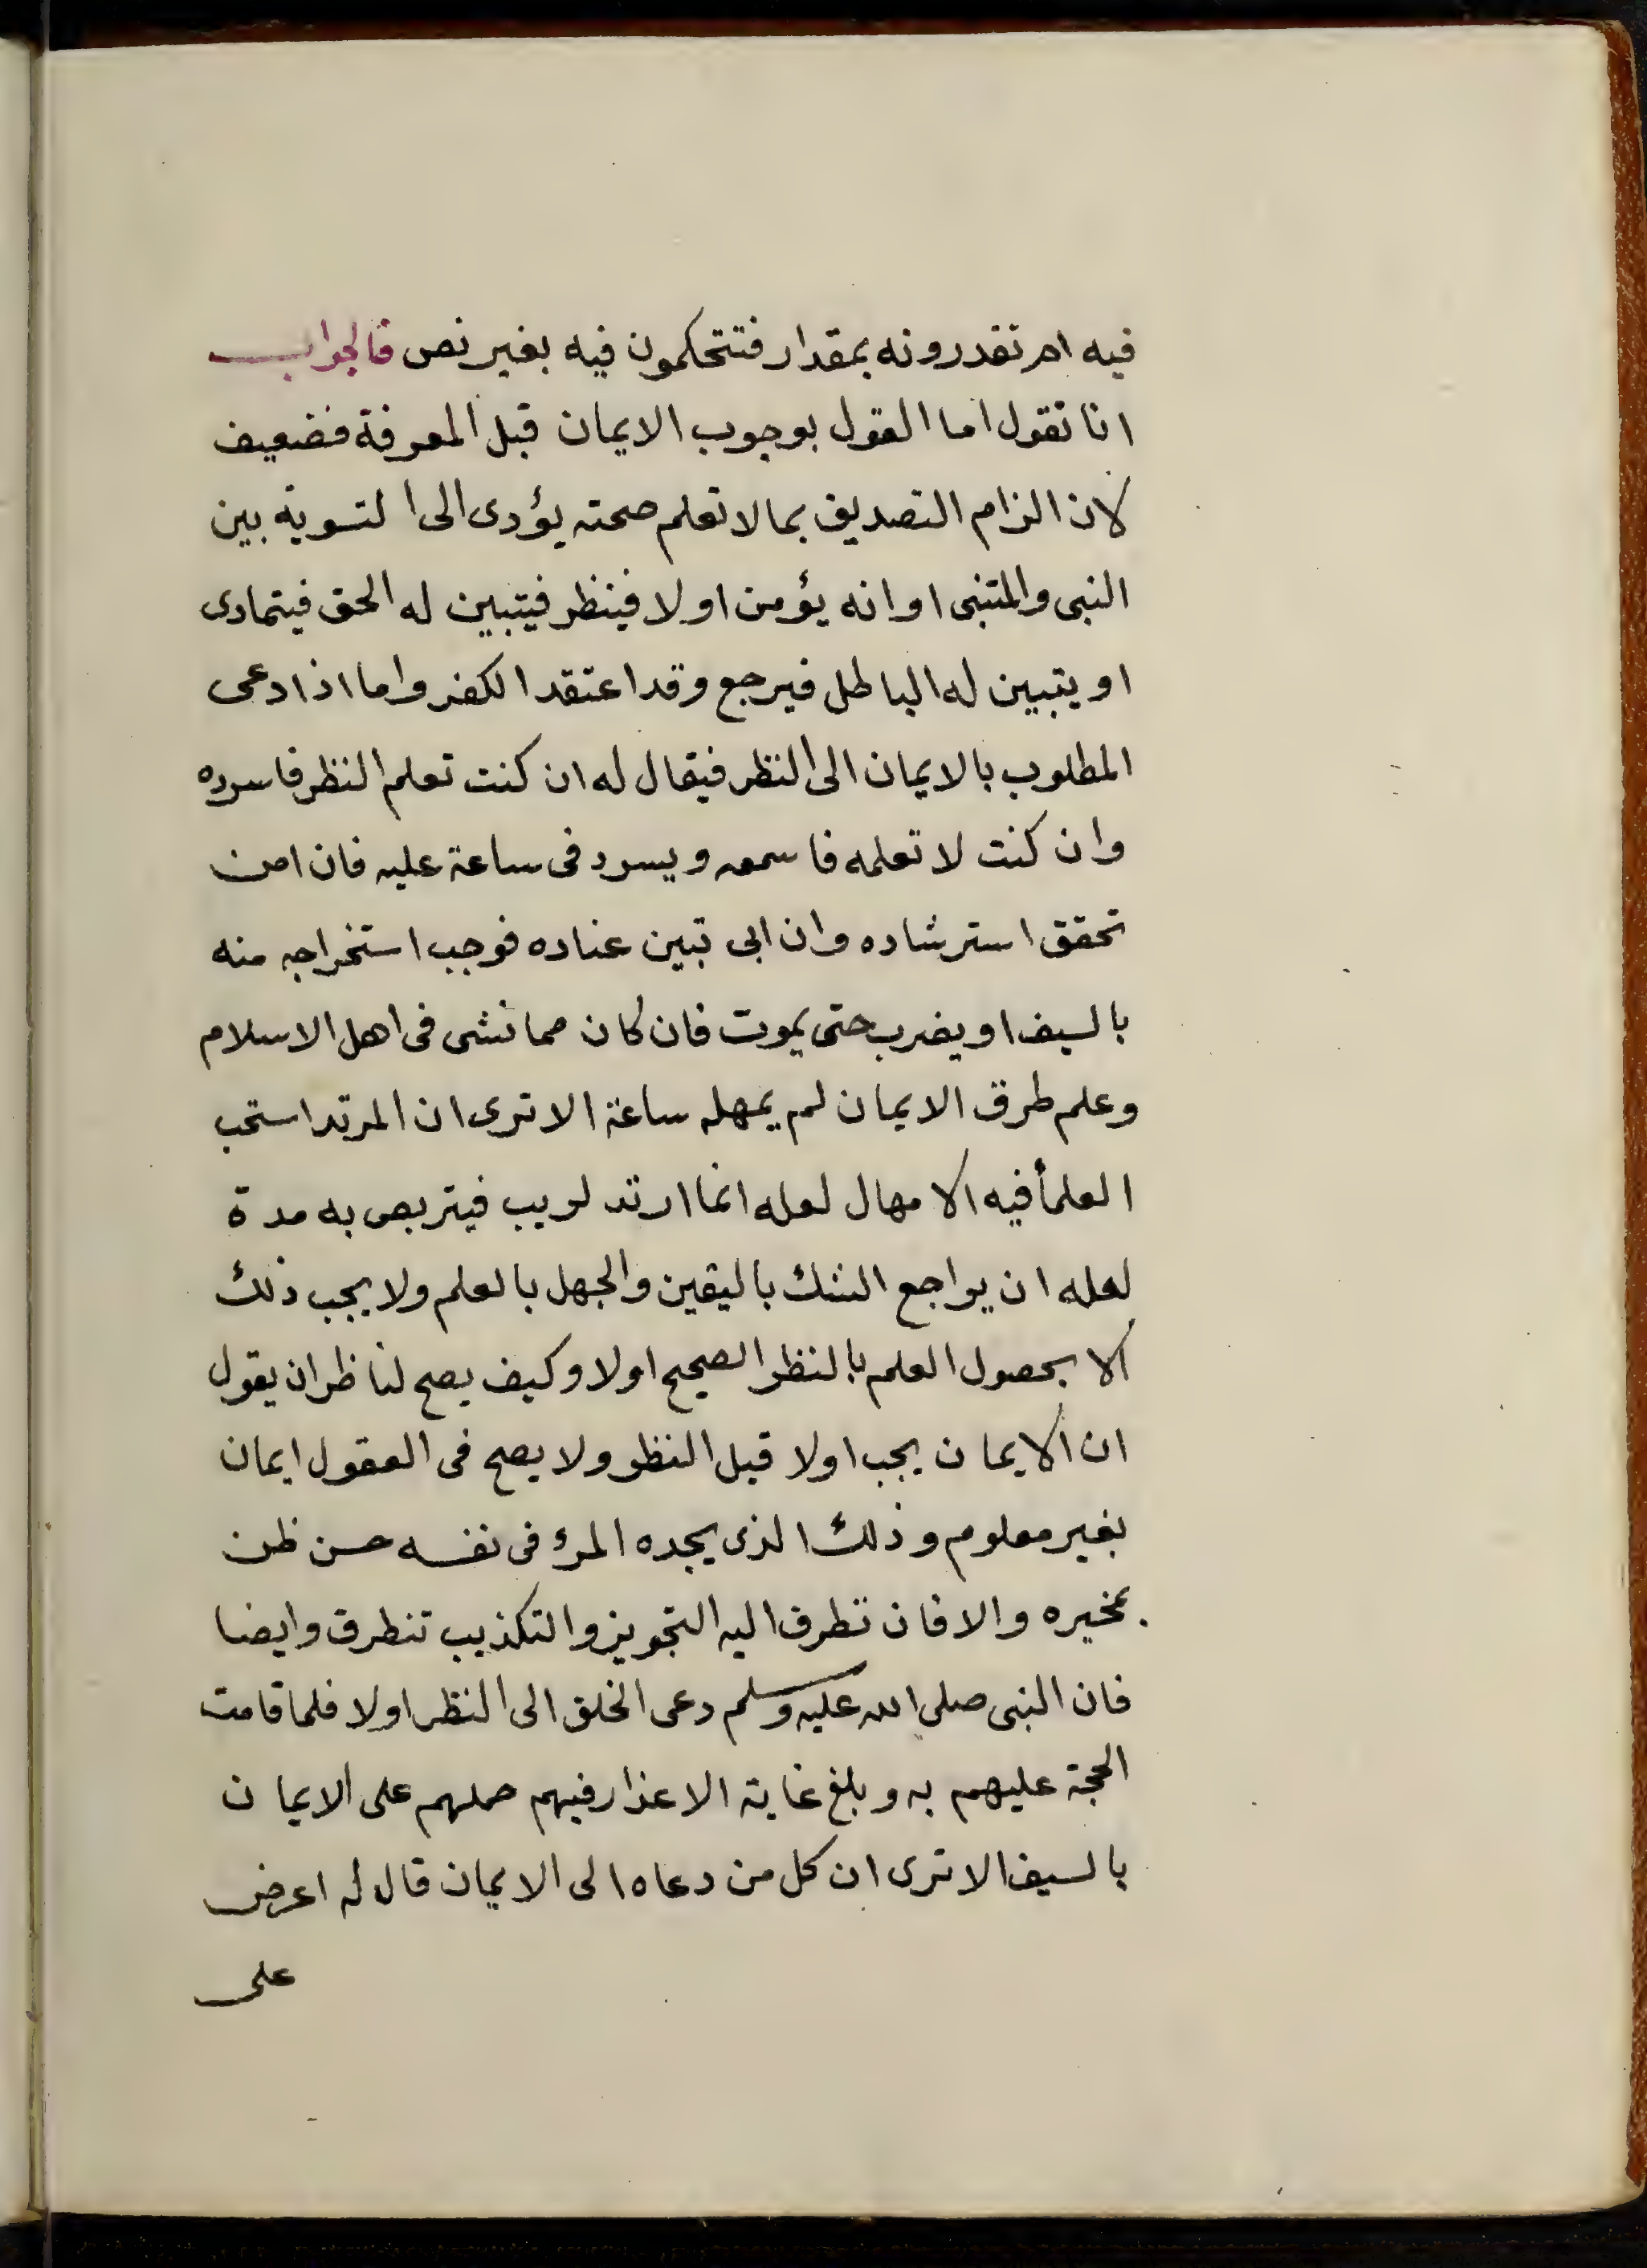 فيه ام تقدرونه بمقدار فتتحكمون فيه بغير نص فالجواب
انا نقول اما القول بوجوب الايمان قبل المعرفة فضعيف
لان الزام التصديق بما لا تعلم صحته يؤدى الى التسوية بين
النبى والمتنبى او انه يؤمن اولا فينظر فيتبين له الحق فيتمادى
او يتبين له الباطل فيرجع وقد اعتقد الكفر واما اذا دعى
المطلوب بالايمان الى النظر فيقال له ان كنت تعلم النظر فاسرده
وان كنت لا تعلمه فاسمعه ويسرد فى ساعة عليه فان امن
تحقق استرشاده وان ابى تبين عناده فوجب استخراجه منه
بالسيف او يضرب حتى يموت فان كان مما نشى فى اهل الاسلام
وعلم طرق الايمان لم يمهله ساعة الا ترى ان المرتد استحب
العلمأ فيه الامهال لعله انما ارتد لريب فيتربص به مدة
لعله ان يراجع الشك باليقين والجهل بالعلم ولا يجب ذلك
الا بحصول العلم بالنظر الصحيح اولا وكيف يصح لناظر ان يقول
ان الايمان يجب اولا قبل النظر ولا يصح فى العقول ايمان
بغير معلوم وذلك الذى يجده المرء فى نفسه حسن ظن
بمخبره والا فان تطرف اليه التجويز والتكذيب تتطرق وايضا
فان النبى صلى الله عليه وسلم دعى الخلق الى النظر اولا فلما قامت
الحجة عليهم به وبلغ غاية الاعذار فيهم حملهم على الايمان
بالسيف الا ترى ان كل من دعاه الى الايمان قال له اعرض
على